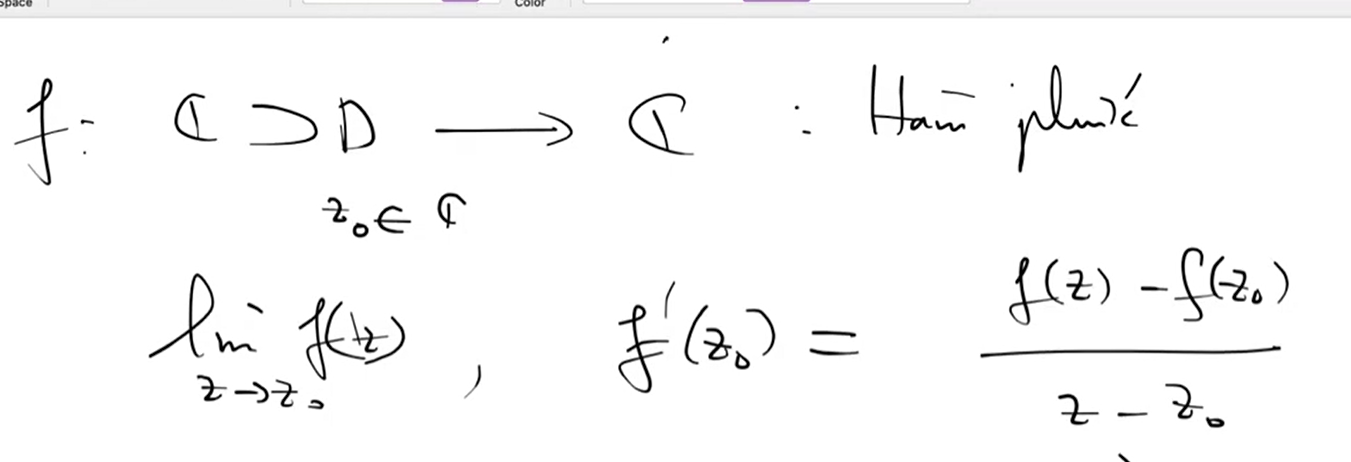 Space Color
f: ℂ ⊃ D ⟶ ℂ : Hàm phức
z₀ ∈ ℂ
lim f(z) , f'(z₀) = (f(z) - f(z₀))/(z - z₀)
z→z₀